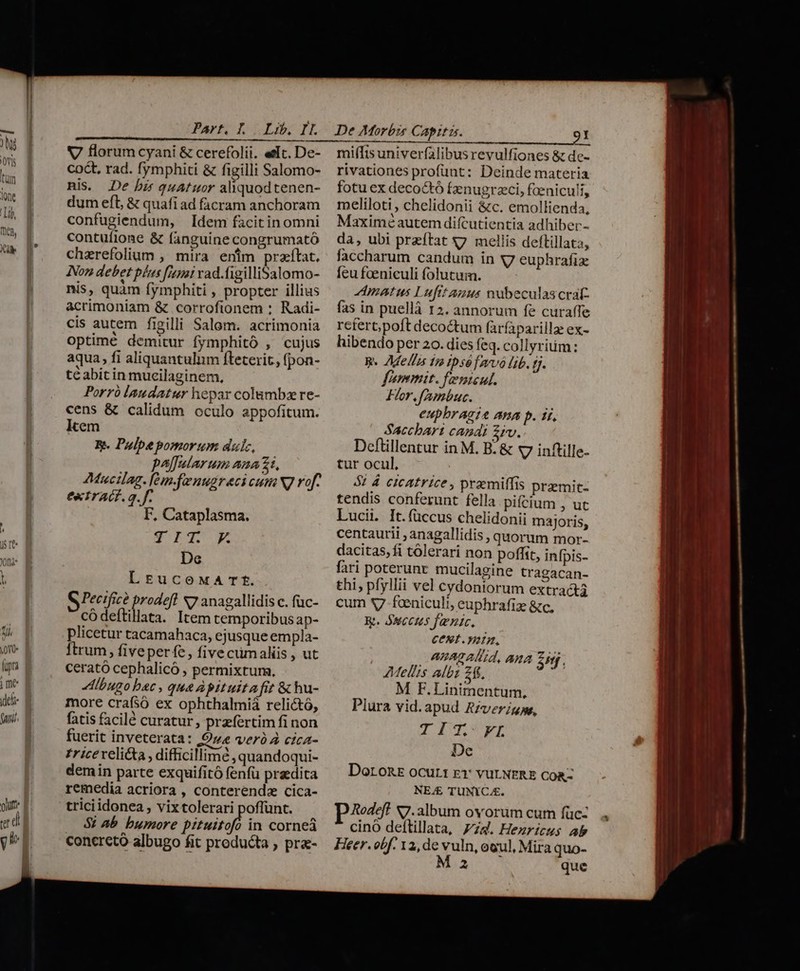 Part. I. Lib. II.
🜄 florum cyani & cerefolii. eſſt. De-
coct. rad. ſymphiti & ſigilli Salomo-
nis. De bis quatuor aliquod tenen-
dum eſt, & quaſi ad ſacram anchoram
confugiendum, Idem facit in omni
contuſione & ſanguine congrumató
chærefolium, mira enim præſtat.
Non debet plus ſumi rad. ſigilli Salomo-
nis, quàm ſymphiti, propter illius
acrimoniam & corroſionem: Radi-
cis autem ſigilli Salom. acrimonia
optimè demitur ſymphitó, cujus
aqua, ſi aliquantulum ſteterit, ſpon-
te abit in mucilaginem.
Porrò laudatur hepar columbæ re-
cens & calidum oculo appoſitum.
Item
℞. Pulpæ pomorum dulc.
paſſularum ana ℥i,
Mucilag. ſem. fænugræci cum 🜄 roſ.
extract. q. ſ.
F. Cataplasma.
TIT. V.
De
LEUCOMATE.
SPecificè prodeſt 🜄 anagallidis c. ſuc-
có deſtillata. Item temporibus ap-
plicetur tacamahaca, ejusque empla-
ſtrum, ſive per ſe, ſive cum aliis, ut
cerató cephalicó, permixtum.
Albugo hæc, quæ à pituita fit & hu-
more craſsó ex ophthalmiâ relictó,
ſatis facilè curatur, præſertim ſi non
fuerit inveterata: Quæ verò à cica-
trice relicta, difficillimè, quandoqui-
dem in parte exquiſitó ſenſu prædita
remedia acriora, conterendæ cica-
trici idonea, vix tolerari poſſunt.
Si ab humore pituitoſo in corneâ
concretó albugo fit producta, præ-
De Morbis Capitis. 91
miſſis univerſalibus revulſiones & de-
rivationes proſunt: Deinde materia
fotu ex decoctó fænugræci, fœniculi,
meliloti, chelidonii &c. emollienda,
Maximè autem diſcutientia adhiben-
da, ubi præſtat 🜄 mellis deſtillata,
ſaccharum candum in 🜄 euphraſiæ
ſeu fœniculi ſolutum.
Amatus Luſitanus nubeculas craſ-
ſas in puellâ 12. annorum ſe curaſſe
refert, poſt decoctum ſarſaparillæ ex-
hibendo per 20. dies ſeq. collyrium:
℞. Mellis in ipsó favó lib. ij.
ſummit. fœnicul.
Flor. ſambuc.
euphragiæ ana p. ii,
Sacchari candi ℥iv.
Deſtillentur in M. B. & 🜄 inſtille-
tur ocul.
Si à cicatrice, præmiſſis præmit-
tendis conferunt fella piſcium, ut
Lucii. It. ſuccus chelidonii majoris,
centaurii, anagallidis, quorum mor-
dacitas, ſi tólerari non poſſit, inſpis-
ſari poterunt mucilagine tragacan-
thi, pſyllii vel cydoniorum extractâ
cum 🜄 fœniculi, euphraſiæ &c.
℞. Succus fœnic.
cent. min.
anagallid. ana ℥iij.
Mellis albi ℥ß.
M. F. Linimentum.
Plura vid. apud Riverium.
TIT. VI.
De
DOLORE OCULI ET VULNERE COR-
NEÆ TUNICÆ.
PRodeſt 🜄. album ovorum cum ſuc-
cinó deſtillata, Vid. Henricus ab
Heer. obſ. 12, de vuln. ocul. Mira quo-
M 2 que